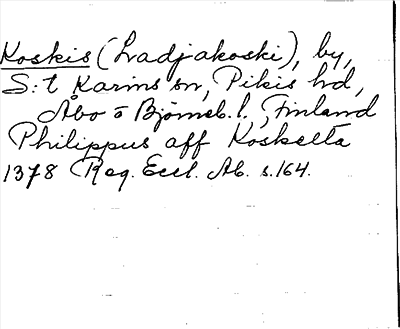 Koskis (Ladjakoski), by,
S:t Karins sn, Pikis hd,
Åbo o Björneb. l., Finland
Philippus aff Koskelta
1378 Reg. Eccl. Ab. s. 164.